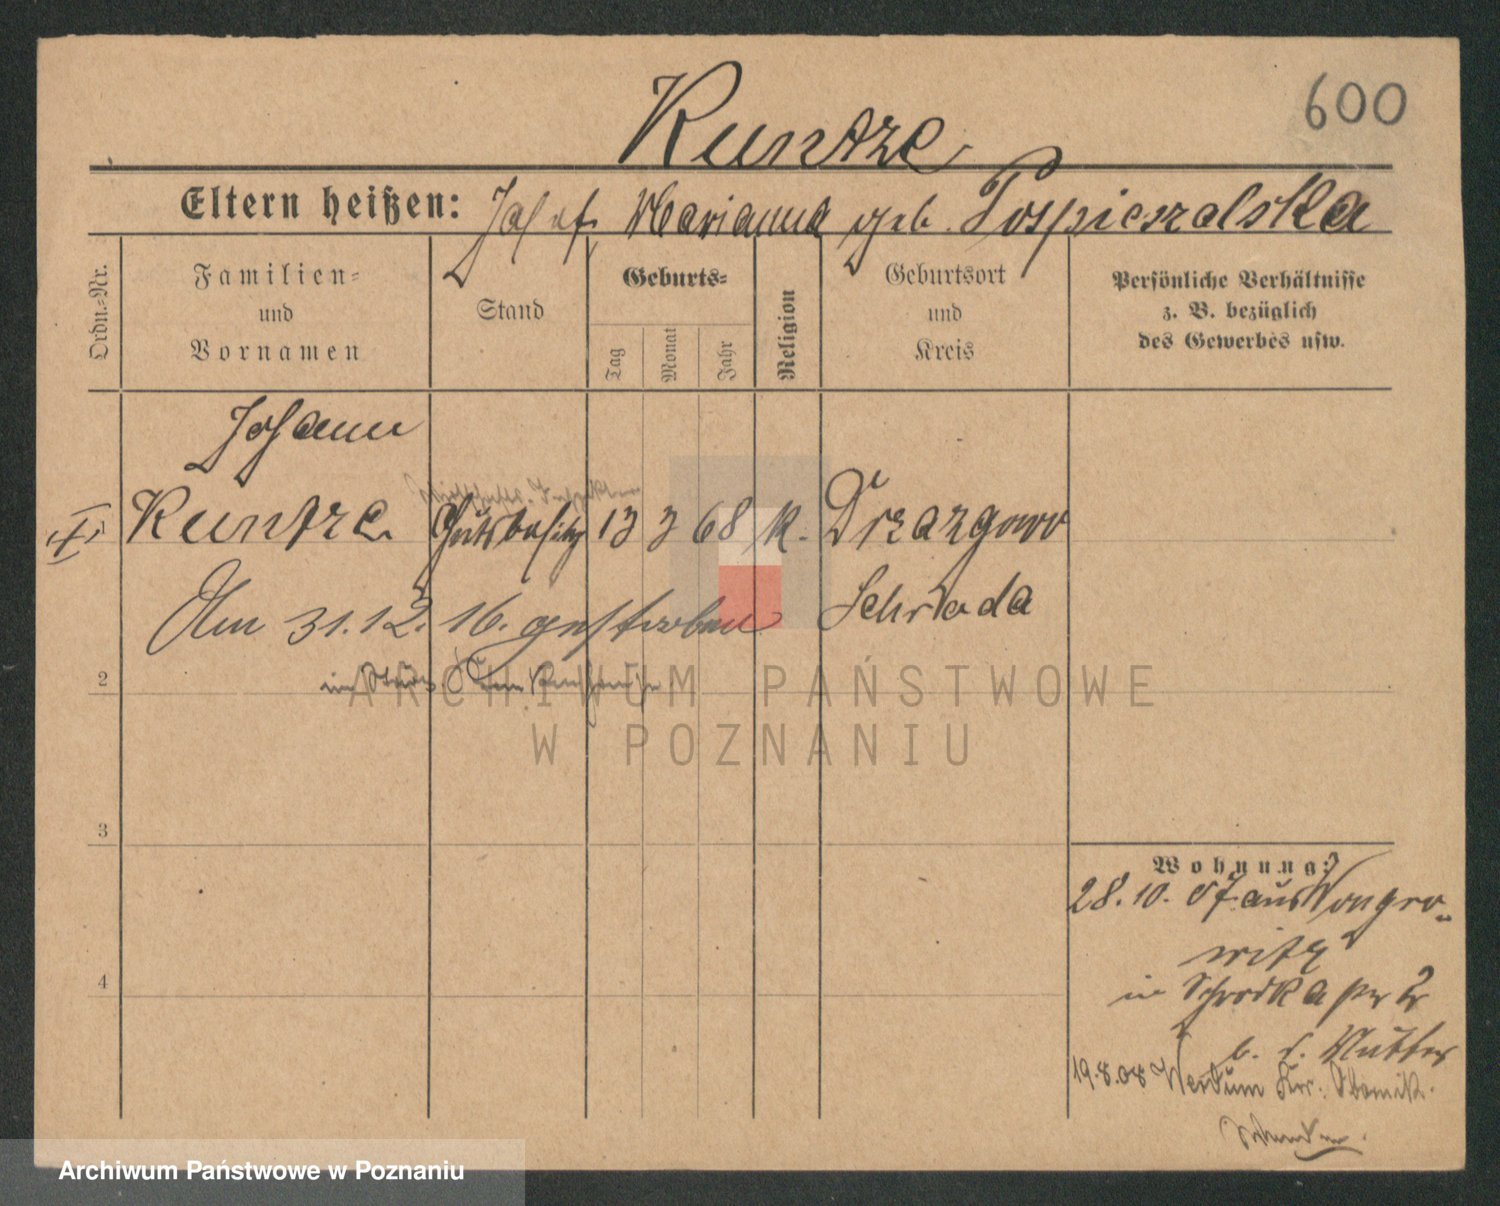 600
Kuntze
Eltern heißen: Josef, Marianna geb. Pospieszalska
Ordn.=Nr.
Familien=
und
Vornamen
Stand
Geburts=
Tag
Monat
Jahr
Religion
Geburtsort
und
Kreis
Persönliche Verhältnisse
z. B. bezüglich
des Gewerbes usw.
Johann
Kuntze Gutsbesitz 13 3 68 K. Drzazgowo
Schroda
Am 31.12. 16. gestorben
2
3
4
Wohnung:
28.10. 07 aus Wongro-
witz
in Schrodka
b. d. Mutter
19.8.08
ARCHIWUM PAŃSTWOWE
W POZNANIU
Archiwum Państwowe w Poznaniu